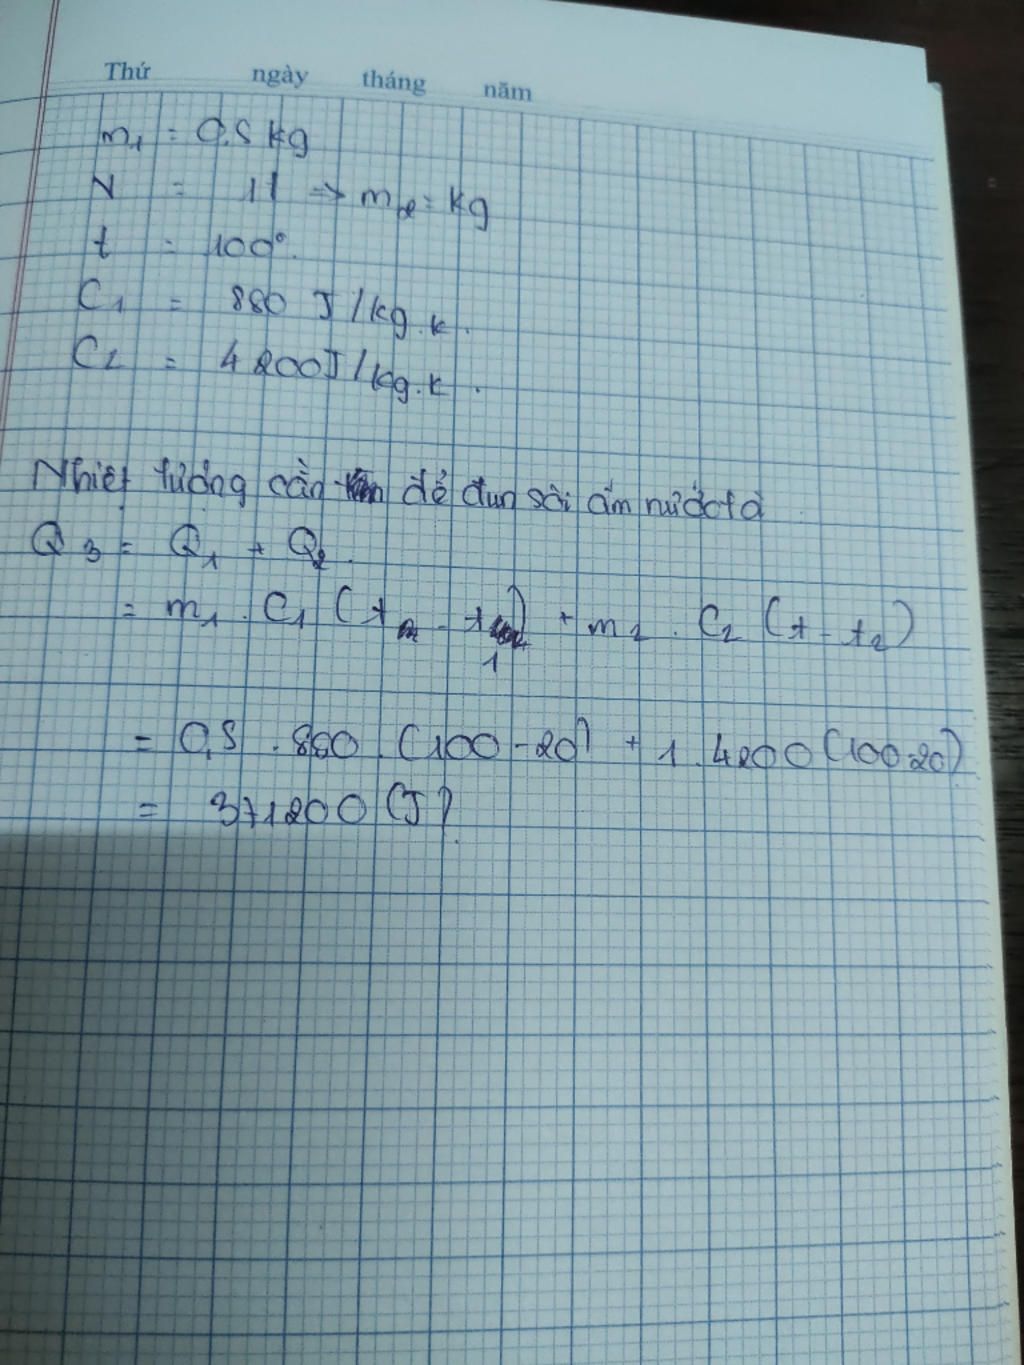 Thứ ngày tháng năm
m1 = 0,5 kg
V = 1l => m2 = kg
t = 100°.
C1 = 880 J/kg.k.
C2 = 4200J/kg.k.
Nhiệt lượng cần để đun sôi ấm nước là
Q3 = Q1 + Q2.
= m1 . C1 (t - t1) + m2 . C2 (t - t2)
= 0,5 . 880 . (100 - 20) + 1 . 4200 (100-20)
= 371200 (J).